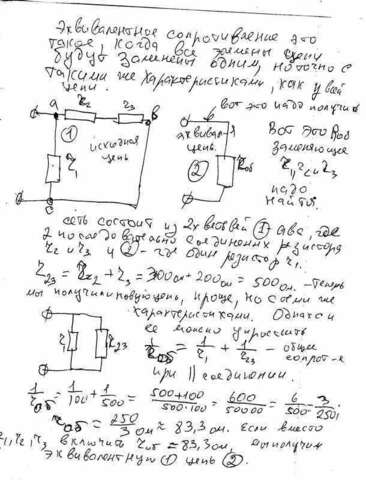 Эквивалентное сопротивление это
такое, когда все элементы цепи
будут заменены одним, но точно с
такими же характеристиками, как у всей
цепи.
вот это надо получить
a r2 r3 B
1
исходная
цепь
r1
c
эквивал-я
цепь.
2
rоб
Вот это Rоб
заменяющее
r1, r2 и r3
надо
найти.
сеть состоит из 2х ветвей 1 авс, где
2 последовательно соединенных резистора
r2 и r3 и 2 - где один резистор r1.
r23 = r2 + r3 = 300ом + 200ом = 500ом. - теперь
мы получили новую цепь, проще, но с теми же
характеристиками. Однако и
ее можно упростить
r1 r23
1/rоб = 1/r1 + 1/r23 - общее
сопрот-е
при || соединении.
1/rоб = 1/100 + 1/500 = 500+100/500·100 = 600/50000 = 6/500 = 3/250;
rоб = 250/3 ом ≈ 83,3ом. Если вместо
r1, r2, r3 включить rоб = 83,3ом, вы получим
эквивалентную 1 цепь 2.